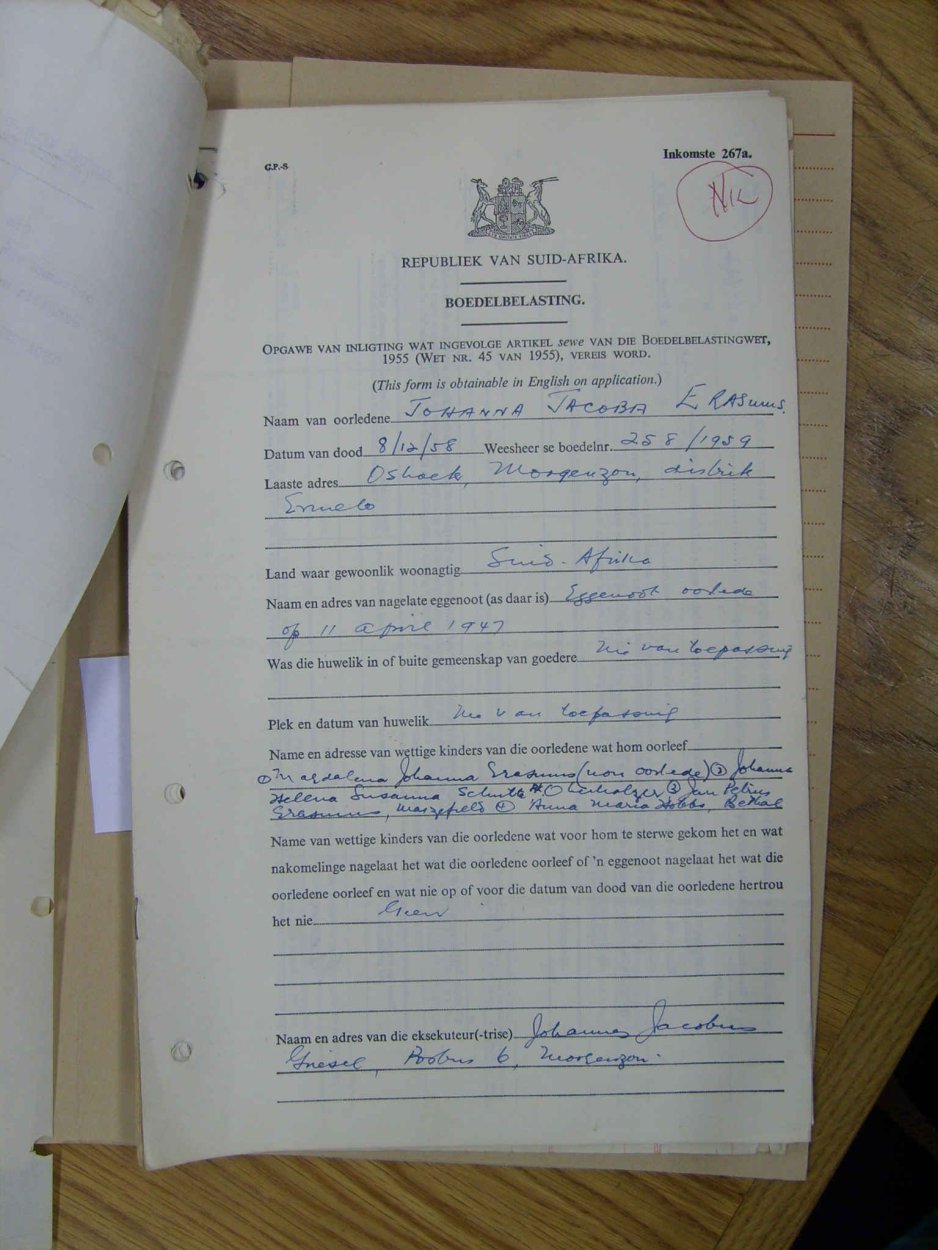 G.P.-S
Inkomste 267a.
NIL
REPUBLIEK VAN SUID-AFRIKA.
BOEDELBELASTING.
OPGAWE VAN INLIGTING WAT INGEVOLGE ARTIKEL sewe VAN DIE BOEDELBELASTINGWET,
1955 (WET NR. 45 VAN 1955), VEREIS WORD.
(This form is obtainable in English on application.)
Naam van oorledene JOHANNA JACOBA ERASMUS.
Datum van dood 8/12/58 Weesheer se boedelnr. 258/1959
Laaste adres Oshoek, Morgenzon, distrik
Ermelo
Land waar gewoonlik woonagtig Suid-Afrika
Naam en adres van nagelate eggenoot (as daar is) Eggenoot oorlede
op 11 April 1947
Was die huwelik in of buite gemeenskap van goedere Nie van toepassing
Plek en datum van huwelik Nie van toepassing
Name en adresse van wettige kinders van die oorledene wat hom oorleef
① Magdalena Johanna Erasmus (nou oorlede) ② Johanna
Helena Susanna Schutte Oberholzer ③ Jan Petrus
Erasmus, ④ Anna Maria Hobbs, Bethal
Name van wettige kinders van die oorledene wat voor hom te sterwe gekom het en wat
nakomelinge nagelaat het wat die oorledene oorleef of 'n eggenoot nagelaat het wat die
oorledene oorleef en wat nie op of voor die datum van dood van die oorledene hertrou
het nie Geen
Naam en adres van die eksekuteur(-trise) Johannes Jacobus
Griesel, Posbus 6, Morgenzon.